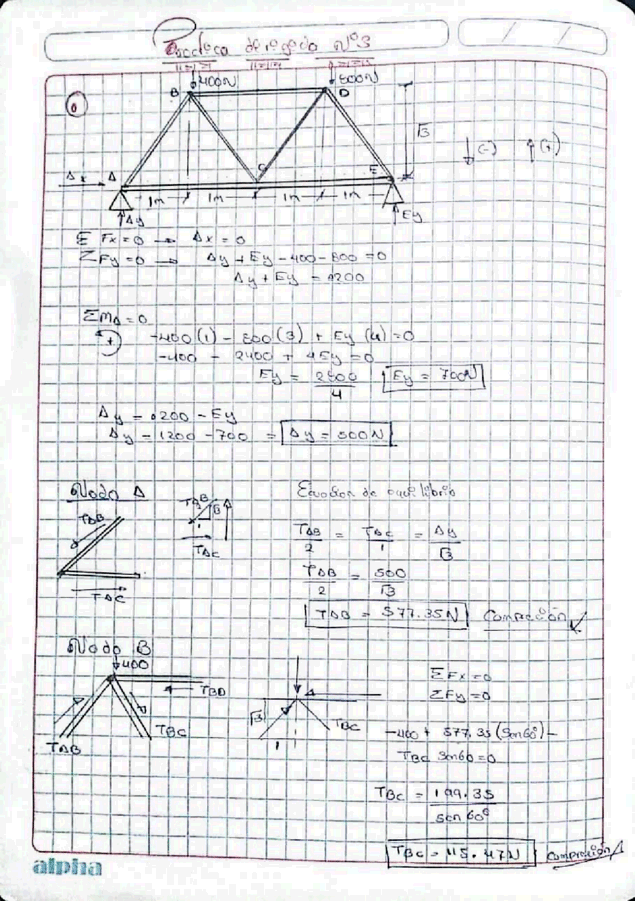 Practica dirigida N°3
400N
800N
B
D
√3
(-)
(+)
Ax
A
C
E
1m
1m
1m
1m
Ay
Ey
Σ Fx = 0 → Ax = 0
Σ Fy = 0 → Ay + Ey - 400 - 800 = 0
Ay + Ey = 1200
ΣMA = 0
(+)
-400 (1) - 800 (3) + Ey (4) = 0
-400 - 2400 + 4Ey = 0
Ey = 2800/4
Ey = 700N
Ay = 1200 - Ey
Ay = 1200 - 700 = Ay = 500N
Nodo A
TAB
TAC
TAB
√3
1
TAC
Ecuacion de equilibrio
TAB/2 = TAC/1 = Ay/√3
TAB/2 = 500/√3
TAB = 577.35N Compresión
Nodo B
400
TBD
TAB
TBC
√3
1
TBC
ΣFx = 0
ΣFy = 0
-400 + 577.35 (Sen60°) -
TBC Sen60 = 0
TBC = 199.35/sen 60°
TBC = 115.47N Compresión
alpha